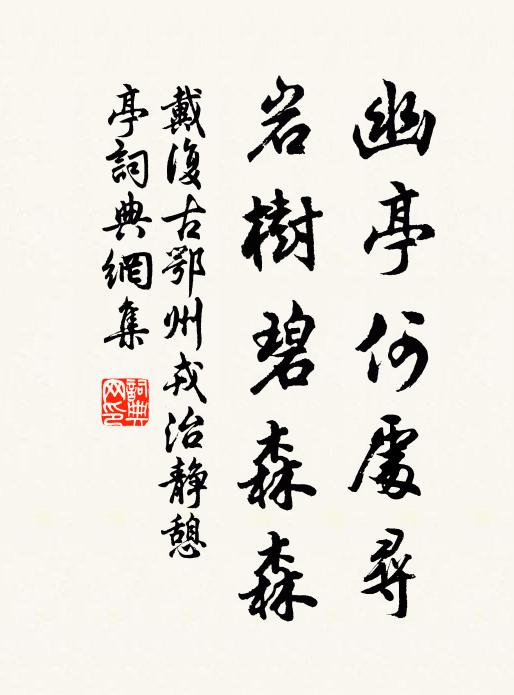 幽亭何處尋
岩樹碧森森
戴復古鄂州戎治靜憩
亭詞典網集
詞典
网印